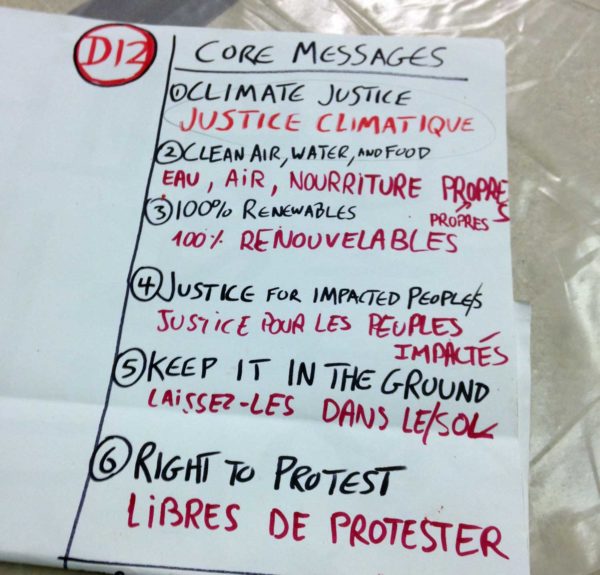 D12
CORE MESSAGES
① CLIMATE JUSTICE
JUSTICE CLIMATIQUE
② CLEAN AIR, WATER, AND FOOD
EAU, AIR, NOURRITURE PROPRES
PROPRES
③ 100% RENEWABLES
100% RENOUVELABLES
④ JUSTICE FOR IMPACTED PEOPLE/S
JUSTICE POUR LES PEUPLES
IMPACTÉS
⑤ KEEP IT IN THE GROUND
LAISSEZ-LES DANS LE/SOL
⑥ RIGHT TO PROTEST
LIBRES DE PROTESTER